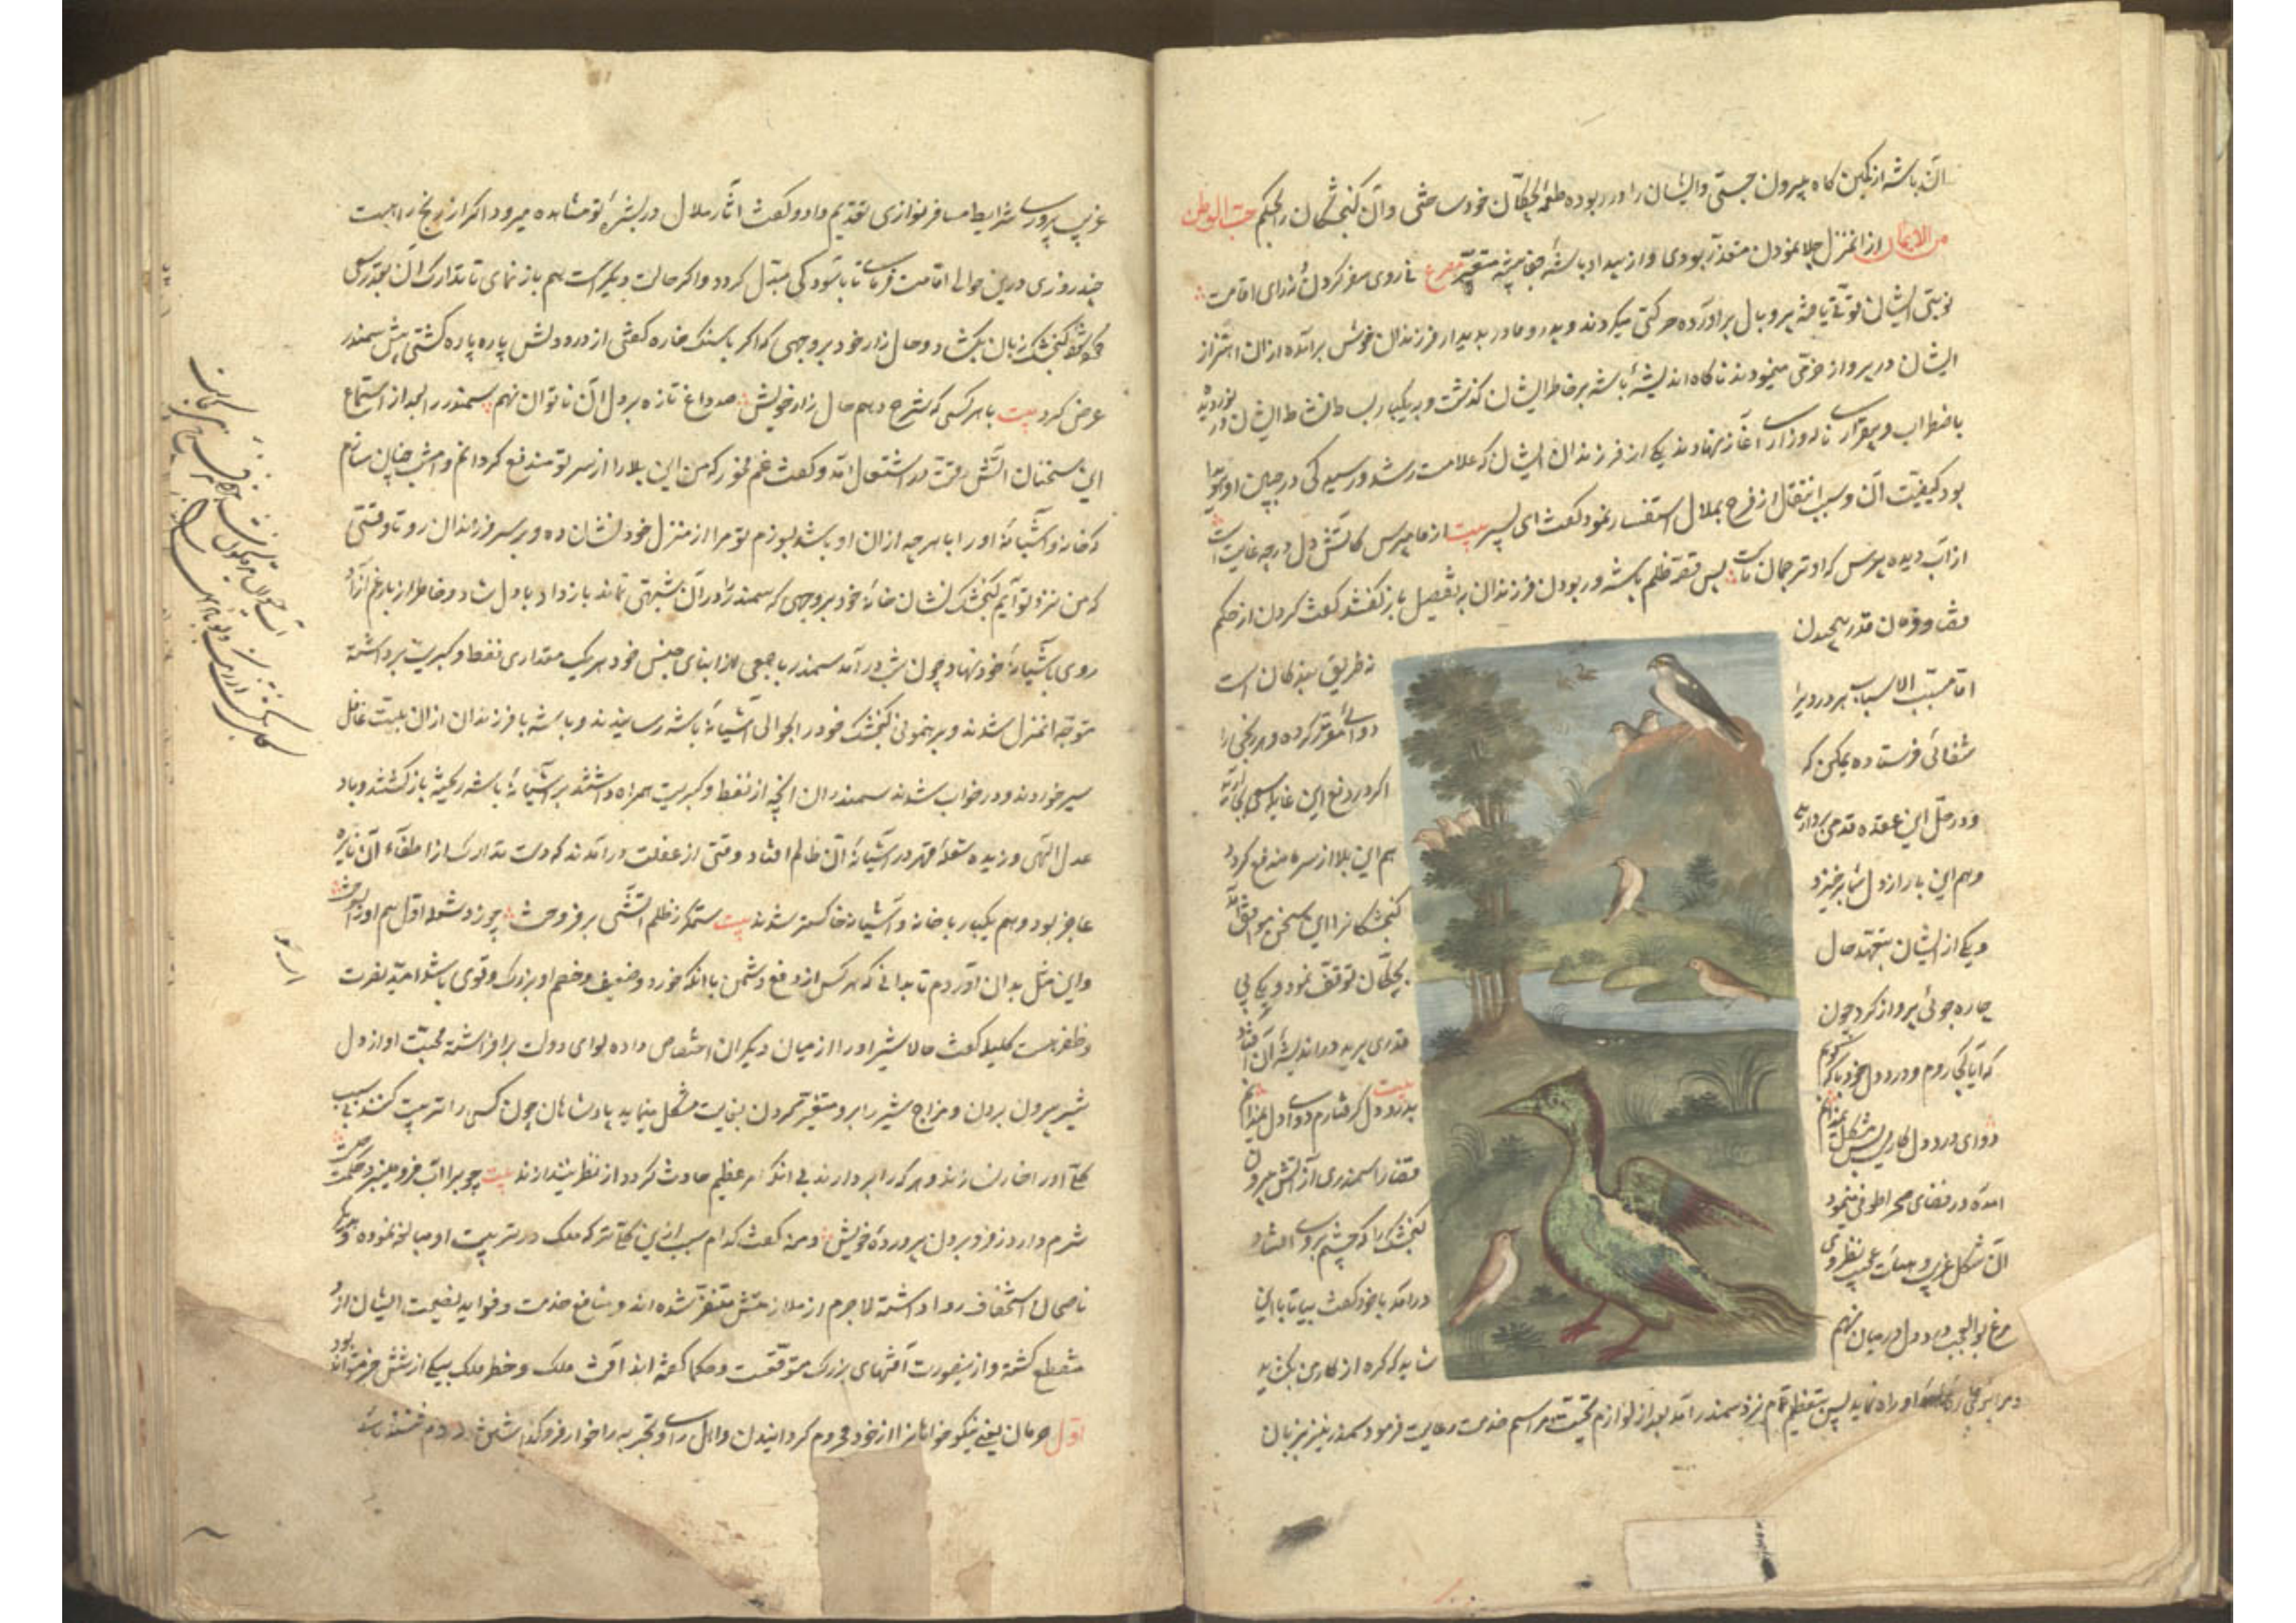 آن باشه از کمین گاه بیرون جستی و ایشان را در ربوده طعمه بچگان خود ساختی و آن کنجشکان را بحکم حبّ الوطن
من الایمان از آن منزل جلا نمودن متعذر بودی و از بیداد باشهٔ جفا پیشه متعسّر مصرع نه روی سفر کردن و نه رای اقامت
نوبتی ایشان قوّتی یافته پر و بال برآورده حرکتی میکردند و پدر و مادر بدیدار فرزندان خویش برآمده از آن اهتزاز
ایشان در پرواز خرّمی مینمودند ناکاه اندیشهٔ باشه بر خاطر ایشان کذشت و بیکبار بساط نشاط ایشان در نوردیده
باضطراب و بیقراری ناله و زاری آغاز نهادند یکی از فرزندان ایشان که علامت رشد و رسیدکی در جبین او هویدا
بود کیفیت آن و سبب انتقال از فرح بملال استفسار نمود کفت ای پسر بیت از ما مپرس کاتش دل در چه غایت است
از آب دیده پرس که او ترجمان ماست پس قصّه ظلم باشه و ربودن فرزندان بتفصیل باز کفتند کفت کردن از حکم
قضا و فرمان قدر پیچیدن
نه طریق بندکان است
امّا مسبّب الاسباب هر دردیرا
دوائی مقرّر کرده و هر رنجی را
شفائی فرستاده یمکن که
اکر در دفع این غایله سعی بجای آرید
و در حلّ این عقده قدمی بردارید
هم این بلا از سر ما مندفع کردد
و هم این بار از دل شما برخیزد
کنجشکانرا این سخن موافق آمد
و یکی از ایشان بتعهّد حال
بچکان توقّف نمود و یکی پی
چاره جوئی پرواز کرد چون
قدری پرید در اندیشه آن افتاد
که آیا کجا روم و درد دل خود با که کویم
بیت بدرد دل کرفتارم دوای دل نمیدانم
دوای درد دل کاریست مشکل نمیدانم
قضا را سمندری از آتش بیرون
آمده در فضای صحرا طوفی مینمود
کنجشک را که چشم بروی افتاد
آن شکل غریب و هیئت عجیب بنظر وی
درآمد با خود کفت بیا تا با این
مرغ بوالعجب درد دل در میان نهم
شاید که کره از کار من بکشاید
او راه نماید پس بتعظیم تمام نزد سمندر آمد بعد از لوازم تحیّت مراسم خدمت رعایت فرمود سمندر نیز بزبان
غریب پروری شرایط مسافر نوازی تقدیم داد و کفت آثار ملال در بشرهٔ تو مشاهده میرود اکر از رنج راهست
چند روزی درین حوالی اقامت فرمای تا بآسودکی مبدّل کردد و اکر حالت دیکرست هم باز نمای تا بتدارک آن بقدر کوشش کنم
کنجشک زبان بکشاد و حال زار خود بروجهی که اکر با سنک خاره کفتی از درد دلش پاره پاره کشتی پیش سمندر
عرض کرد بیت با هر کسی که شرح دهم حال زار خویش صد داغ تازه بر دل آن ناتوان نهم سمندر را بعد از استماع
این سخنان آتش رقّت در اشتعال آمد و کفت غم مخور که من این بلا را از سر تو مندفع کردانم و امشب چنان سازم
که خانه و آشیانهٔ او را با هر چه از آن او باشد بسوزم تو مرا از منزل خود نشان ده و بر سر فرزندان رو تا وقتی
که من نزد تو آیم کنجشک نشان خانهٔ خود بروجهی که سمندر را در آن شبهتی نماند باز داد و با دل شاد و خاطر از بار غم آزاد
روی بآشیانهٔ خود نهاد و چون شب درآمد سمندر با جمعی از ابنای جنس خود هر یک مقداری نفط و کبریت برداشته
متوجّه آنمنزل شدند و برهنمونی کنجشک خود را بحوالی آشیانهٔ باشه رسانیدند و باشه با فرزندان از آن بلیّت غافل
سیر خوردند و در خواب شدند سمندران آنچه از نفط و کبریت همراه داشتند بر آشیانهٔ باشه ریخته باز کشتند و باد
عدل الهی وزیده شعلهٔ قهر در آشیانهٔ آن ظالم افتاد و وقتی از غفلت درآمدند که دست تدارک از اطفاء آن نایره
عاجز بود و هم بیکبار با خانه و آشیانه خاکستر شدند بیت ستمکر ز ظلم آتشی برفروخت چو زد شعله اوّل هم او را بسوخت
و این مثل بدان آوردم تا بدانی که هر کس از دفع دشمن با آنکه خورد و ضعیف و خصم او بزرک و قوی باشد امید نصرت
و ظفر هست کلیله کفت حالا شیر او را از میان دیکران اختصاص داده لوای دولت برافراشته محبّت او از دل
شیر بیرون بردن و مزاج شیر را برو متغیّر کردن بغایت مشکل مینماید پادشاهان چون کسی را تربیت کنند بی سبب
کلّی او را خار نسازند و هر کرا بردارند بی آنکه امر عظیم حادث کردد از نظر نیندازند بیت چوب را آب فرو مینبرد حکمت چیست
شرم دارد ز فرو بردن پروردهٔ خویش دمنه کفت کدام سبب ازین کلّی‌تر که ملک در تربیت او مبالغه نموده و بدیکر
ناصحان استخفاف روا داشته لاجرم از ملازمتش متنفّر شده اند و منافع خدمت و فواید نصیحت ایشان ازو
منقطع کشته و از ینصورت آفتهای بزرک متوقّعست و حکما کفته اند آفت ملک و خطر ملک بیکی از شش چیز تواند بود
اوّل حرمان یعنی نیکو خواهانرا از خود محروم کردانیدن و اهل رای و تجربه را خوار فرو کذاشتن دوم فتنه